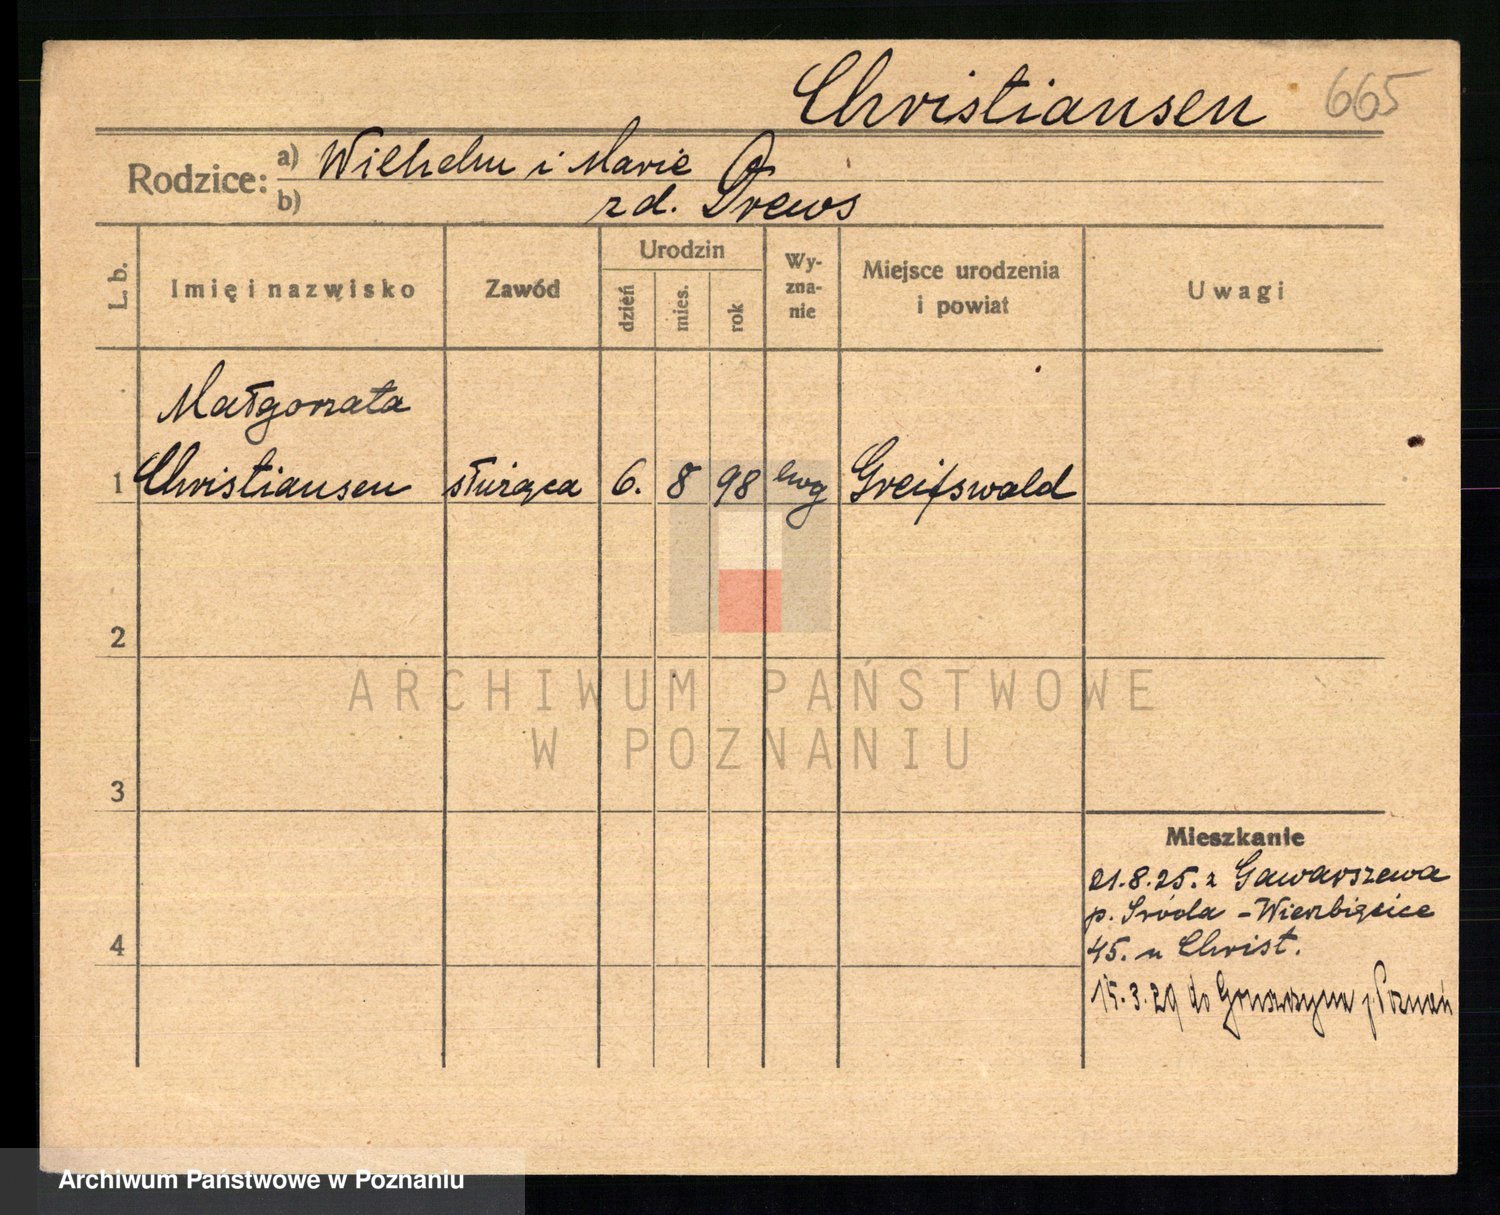 Christiansen 665
Rodzice: a) Wilhelm i Marie
b) zd. Drews
L. b. Imię i nazwisko Zawód Urodzin dzień mies. rok Wy-zna-nie Miejsce urodzenia i powiat Uwagi
Małgorzata
1 Christiansen służąca 6. 8 98 ewg Greifswald
2
ARCHIWUM PAŃSTWOWE
W POZNANIU
3
Mieszkanie
21.8.25. z Gawarszewa
p. Sróda - Wierzbięcice
4
45. u Christ.
15.3.29 do p. Poznań
Archiwum Państwowe w Poznaniu